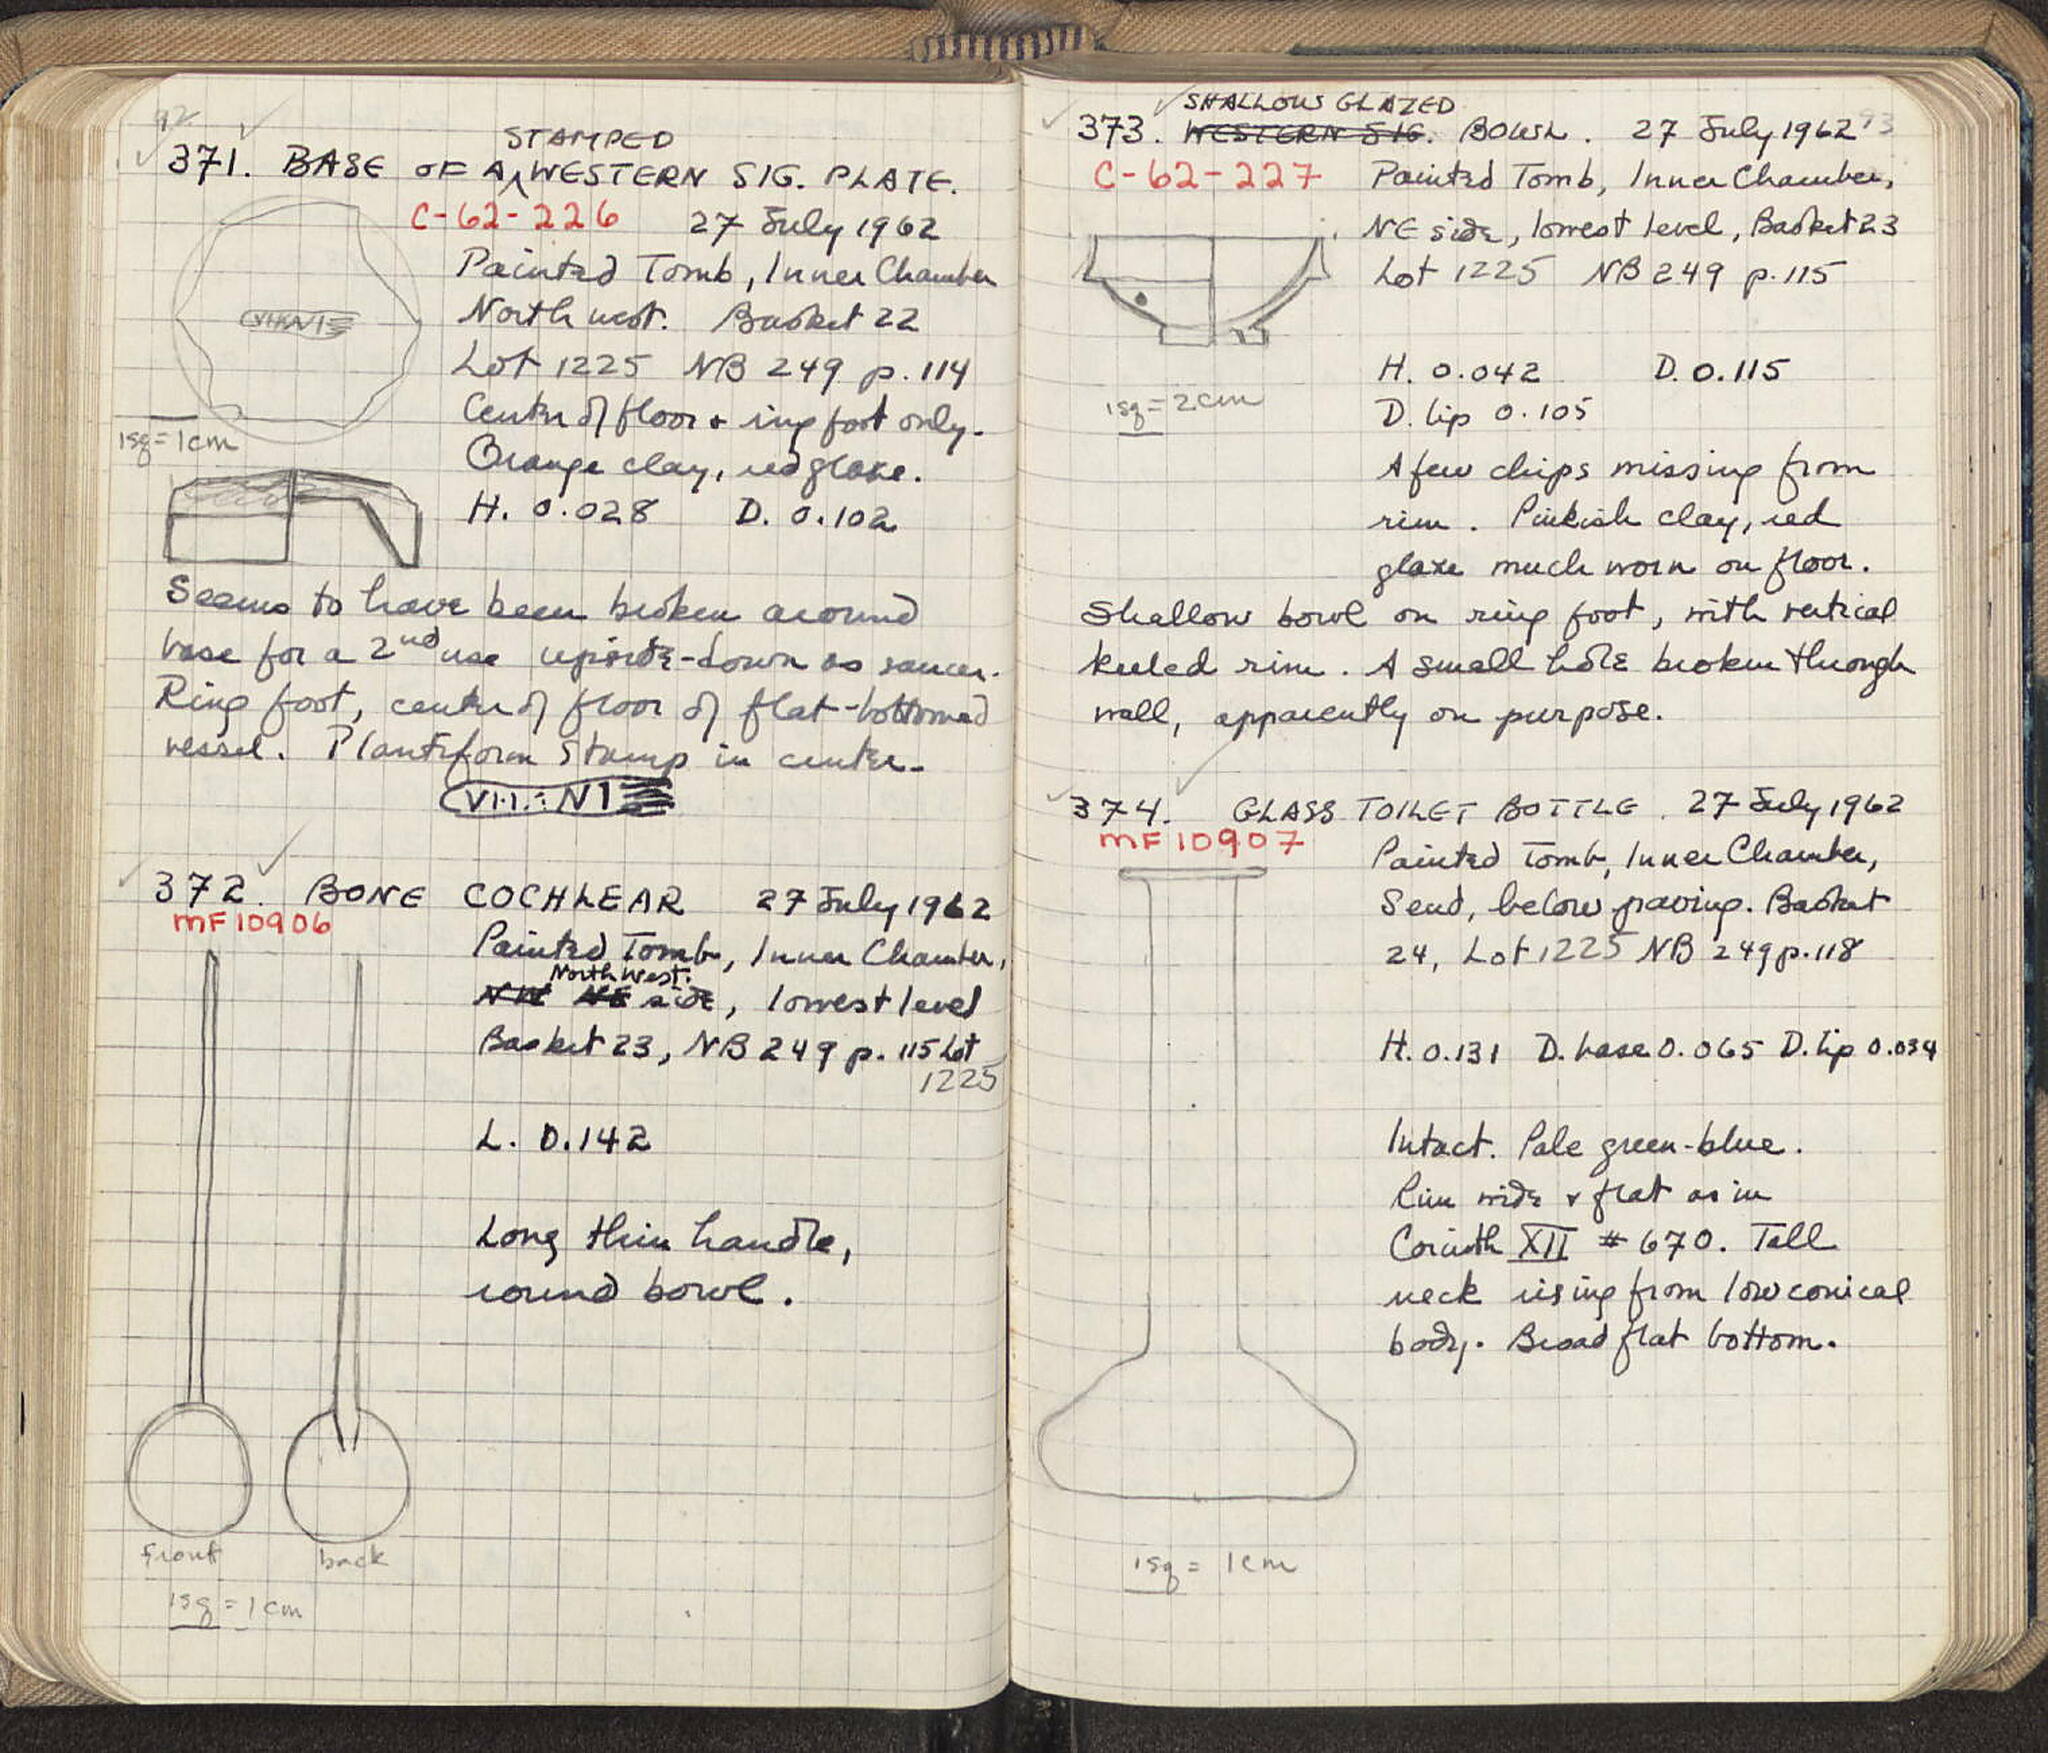 92
371. BASE OF A STAMPED WESTERN SIG. PLATE.
C-62-226 27 July 1962
Painted Tomb, Inner Chamber
North west. Basket 22
Lot 1225 NB 249 p. 114
Center of floor + ring foot only.
Orange clay, red glaze.
H. 0.028 D. 0.102
1sq = 1cm
Seems to have been broken around
base for a 2nd use upside-down as saucer.
Ring foot, center of floor of flat-bottomed
vessel. Plantiform stamp in center.
372. BONE COCHLEAR 27 July 1962
MF10906
Painted Tomb, Inner Chamber,
North West.
NW NE side, lowest level
Basket 23, NB 249 p. 115 Lot
1225
L. 0.142
Long thin handle,
round bowl.
front back
1sq = 1cm
93
SHALLOW GLAZED
373. WESTERN SIG. BOWL. 27 July 1962
C-62-227 Painted Tomb, Inner Chamber,
NE side, lowest level, Basket 23
Lot 1225 NB 249 p. 115
H. 0.042 D. 0.115
1sq = 2cm
D. lip 0.105
A few chips missing from
rim. Pinkish clay, red
glaze much worn on floor.
Shallow bowl on ring foot, with vertical
keeled rim. A small hole broken through
wall, apparently on purpose.
374. GLASS TOILET BOTTLE. 27 July 1962
MF10907
Painted Tomb, Inner Chamber,
S end, below paving. Basket
24, Lot 1225 NB 249 p. 118
H. 0.131 D. base 0.065 D. lip 0.034
Intact. Pale green-blue.
Rim wide + flat as in
Corinth XII # 670. Tall
neck rising from low conical
body. Broad flat bottom.
1sq = 1cm